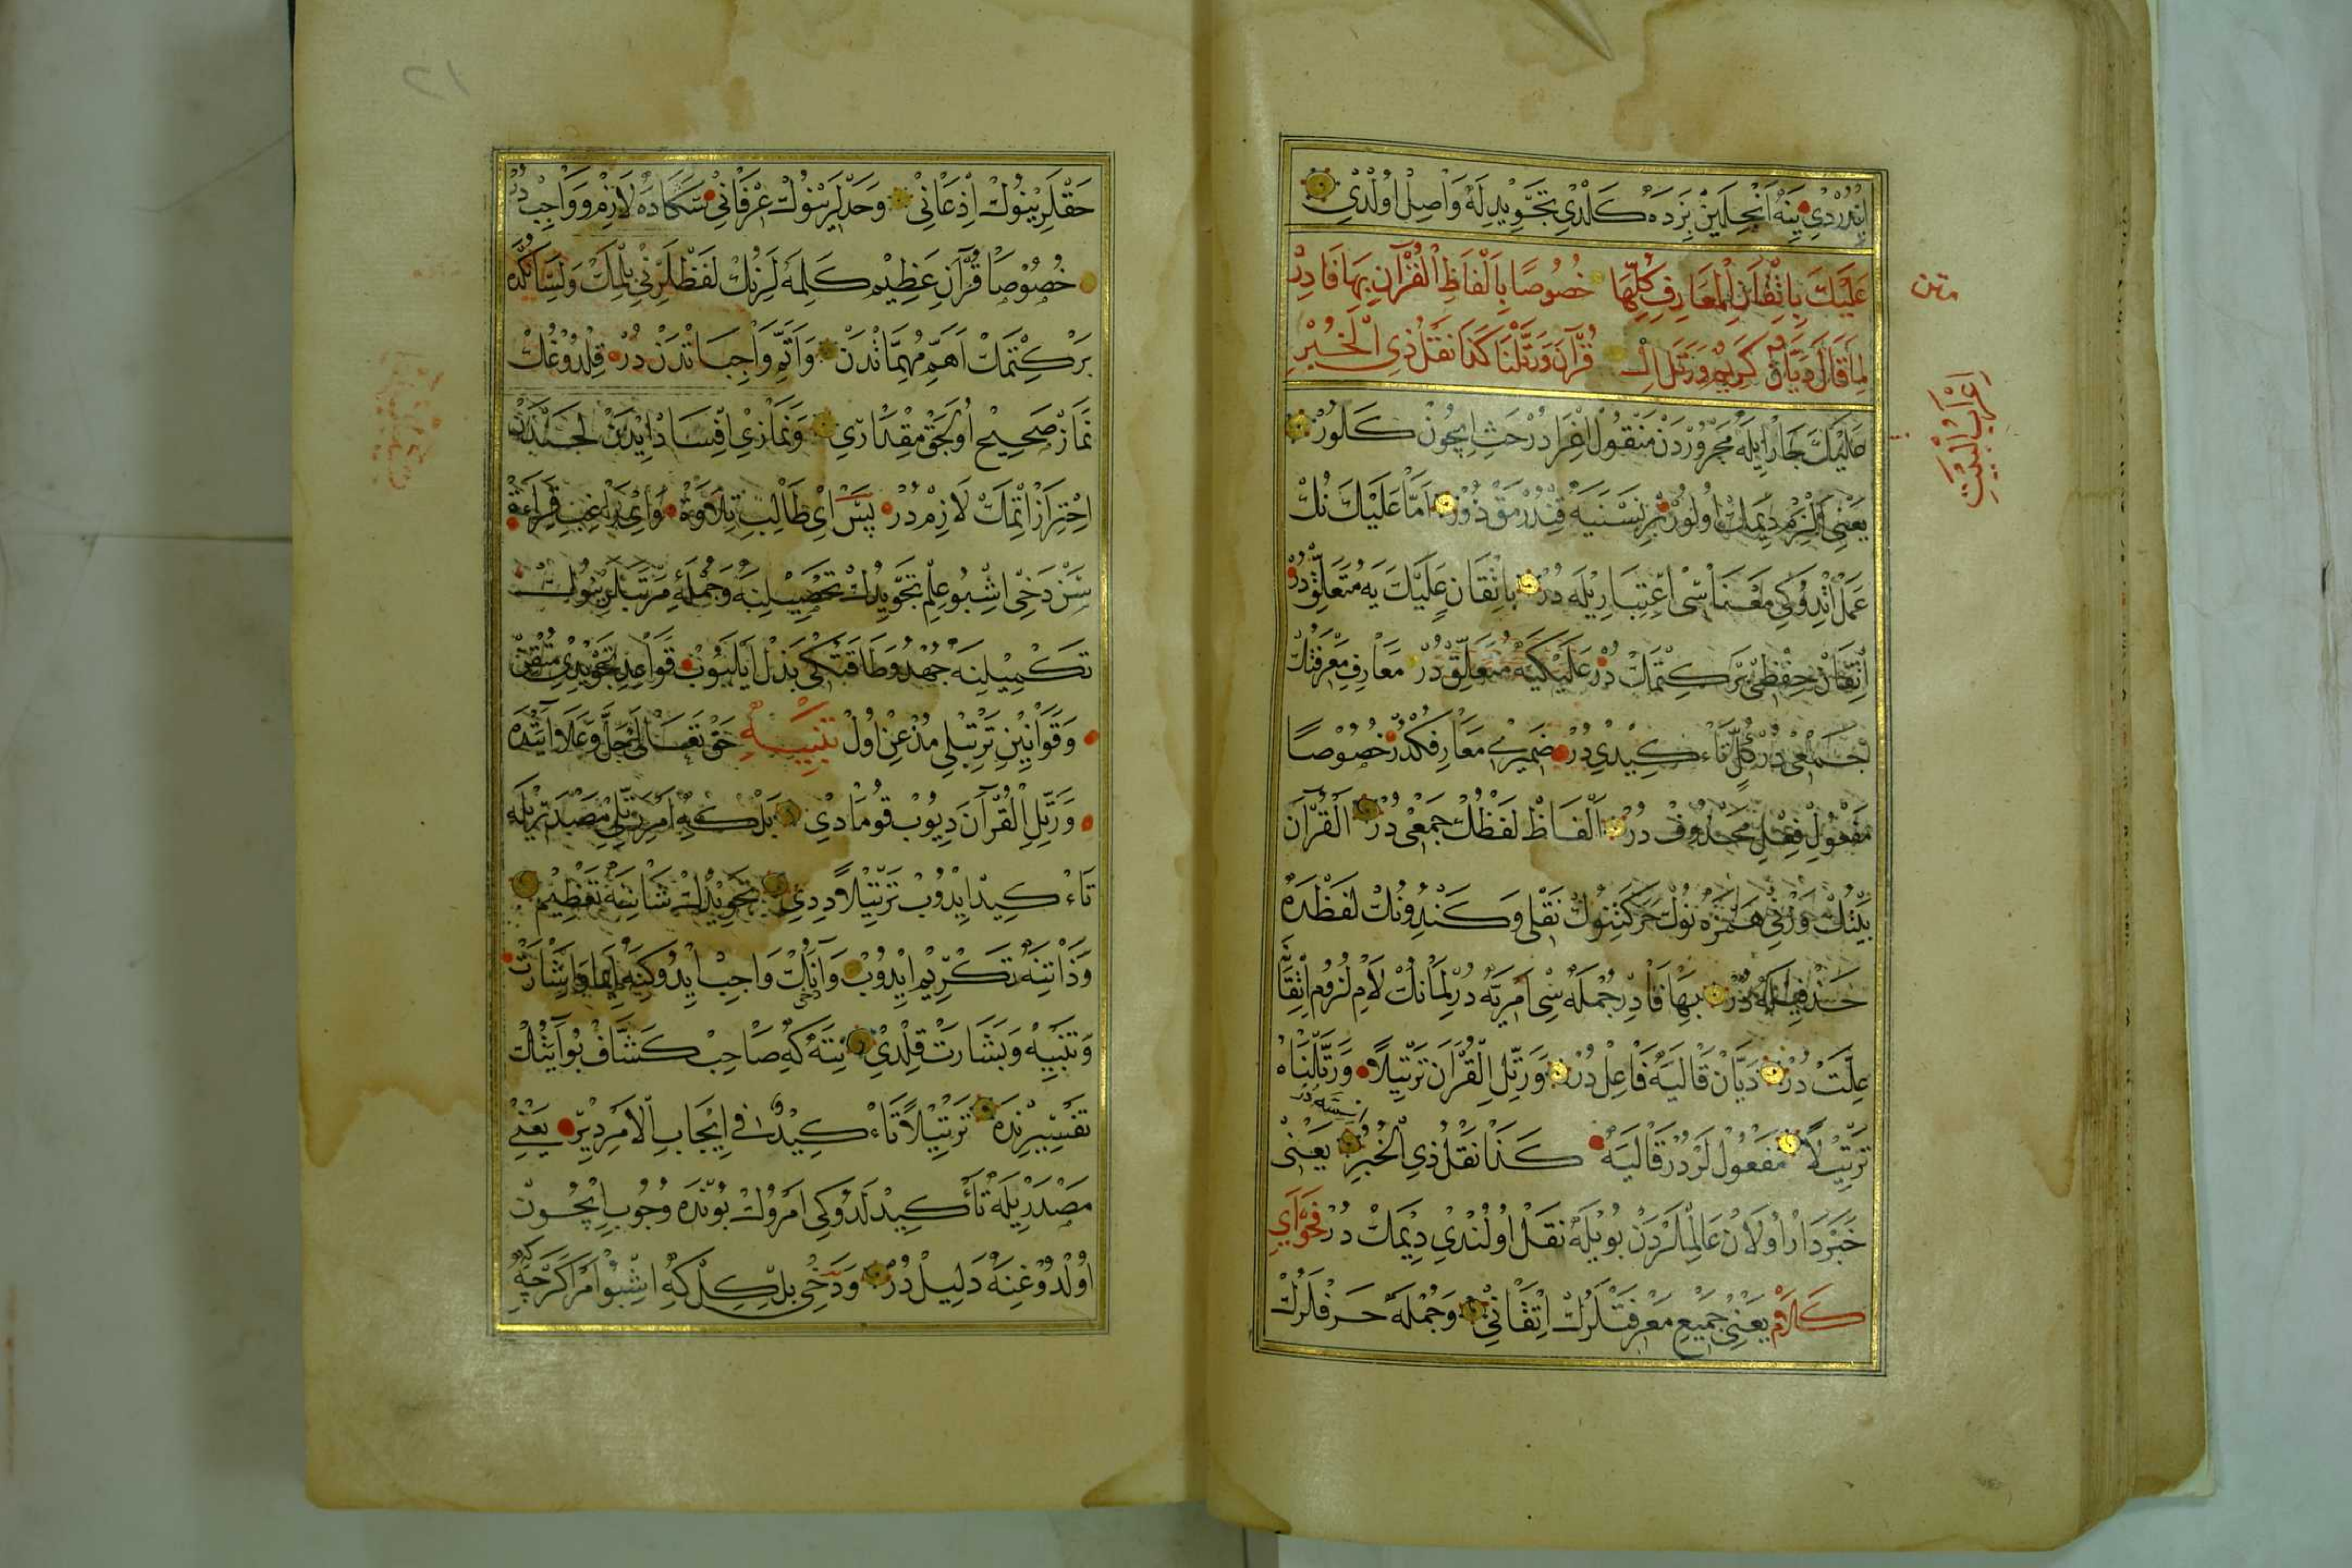 ایندردی ینه آنجلین بزده کلدی تجویدله واصل اولدی
علیك باتقان المعارف كلها خصوصا بالفاظ القرآن بها فادر
لما قال ديان كريم ورتل ال قرآن ورتلنا كذا نقل ذي الخبر
علیك جار ایله مجروردن منقول اغرادر حث ایچون کلور
یعنی الزم دیمك اولور بر نسنیه قندرمقدر اما علیك نك
عمل اتدوکی معناسی اعتباریله در باتقان علیك یه متعلقدر
اتقان حفظی برکتمك در علیکیه متعلق در معارف معرفتك
جمعی در کل تاءکیدی در ضمیری معارفکدر خصوصا
مفعول فعل محذوف در الفاظ لفظك جمعی در القرآن
بیتك وزنی همزه نوك حرکتنوك نقلی و کندونك لفظده
حذفیله در بها فادر جمله سی امریه در لمانك لام لزوم اتقانه
علت در دیان قالیه فاعل در ورتل القرآن ترتیلا ورتلناه
ترتیلا مفعول لردر قالیه کذا نقل ذی الخبر یعنی
خبردار اولان عالملردن بویله نقل اولندی دیمك در فحوای
کلام یعنی جمیع معرفتلرك اتقانی و جمله حرفلرك
متن
اعراب البیت
١٢
حقلرینوك اذعانی وحدلرینوك عرفانی سکاده لازم و واجب در
خصوصا قرآن عظیم کلمه لرنك لفظلرنی بلمك ولسانکده
برکتمك اهم مهماتدن واتم واجباتدن در قلدوغك
نماز صحیح اولجق مقداری ونمازی افساد ایدن لحندن
احتراز اتمك لازم در پس ای طالب تلاوة وای راغب قراءة
سن دخی اشبو علم تجویدك تحصیلنه وجمله مرتبلرینوك
تکمیلنه جهد وطاقتکی بذل ایلیوب قواعد تجویدی متقن
وقوانین ترتیلی مذعن اول تنبیه حق تعالی جل وعلا آیتده
ورتل القرآن دیوب قومادی بلکه امر رتلی مصدریله
تاءکید ایدوب ترتیلا دیدی تجویدك شاننه تعظیم
وذاتنه تکریم ایدوب وآنك دخی واجب ایدوکنه ایما واشارت
وتنبیه وبشارت قلدی نته که صاحب کشاف بو آیتك
تفسیرنده ترتیلا تاءکید فی ایجاب الامر دیر یعنی
مصدریله تاءکیدلدوکی امروك بونده وجوب ایچون
اولدوغنه دلیل در ودخی بلکل که اشبو امر اکرچه